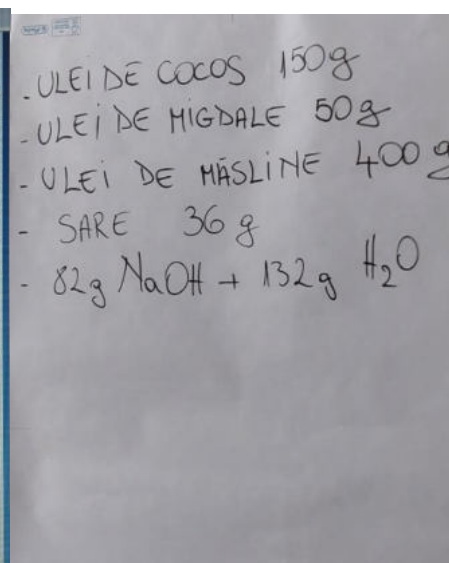 - ULEI DE COCOS 150g
- ULEI DE MIGDALE 50g
- ULEI DE MĂSLINE 400 g
- SARE 36 g
- 82g NaOH + 132g H₂O